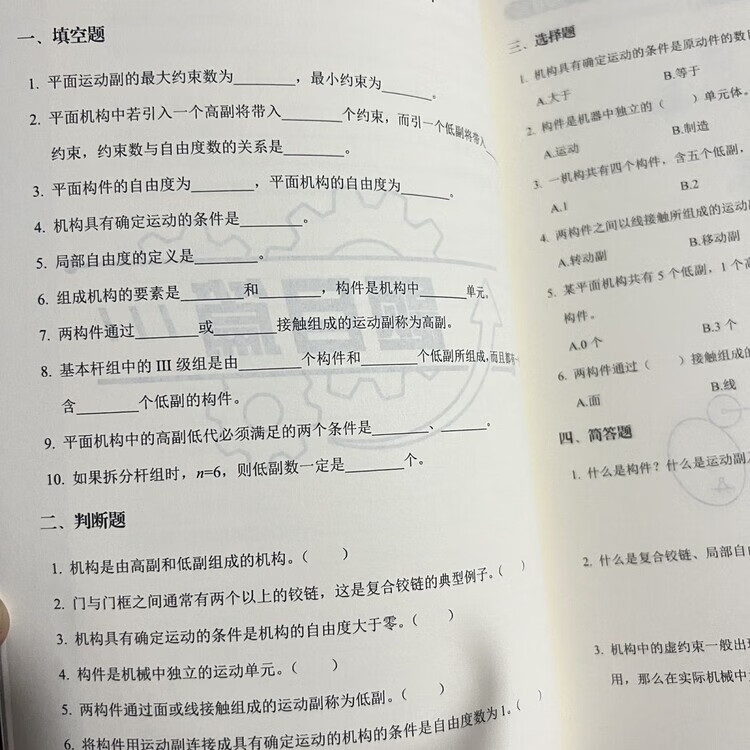 一、填空题
1. 平面运动副的最大约束数为________，最小约束为________。
2. 平面机构中若引入一个高副将带入________个约束，而引一个低副将带入
约束，约束数与自由度数的关系是________。
3. 平面构件的自由度为________，平面机构的自由度为________。
4. 机构具有确定运动的条件是________。
5. 局部自由度的定义是________。
6. 组成机构的要素是________和________，构件是机构中________单元。
7. 两构件通过________或________接触组成的运动副称为高副。
8. 基本杆组中的 III 级组是由________个构件和________个低副所组成，而且都有一
含________个低副的构件。
9. 平面机构中的高副低代必须满足的两个条件是________、________。
10. 如果拆分杆组时，n=6，则低副数一定是________个。
二、判断题
1. 机构是由高副和低副组成的机构。（ ）
2. 门与门框之间通常有两个以上的铰链，这是复合铰链的典型例子。（ ）
3. 机构具有确定运动的条件是机构的自由度大于零。（ ）
4. 构件是机械中独立的运动单元。（ ）
5. 两构件通过面或线接触组成的运动副称为低副。（ ）
6. 将构件用运动副连接成具有确定运动的机构的条件是自由度数为 1。（ ）
三、选择题
1. 机构具有确定运动的条件是原动件的数目
A.大于 B.等于
2. 构件是机器中独立的（ ）单元体。
A.运动 B.制造
3. 一机构共有四个构件，含五个低副，
A.1 B.2
4. 两构件之间以线接触所组成的运动
A.转动副 B.移动副
5. 某平面机构共有 5 个低副，1 个高
构件。
A.0 个 B.3 个
6. 两构件通过（ ）接触组成的
A.面 B.线
四、简答题
1. 什么是构件？什么是运动副
2. 什么是复合铰链、局部自
3. 机构中的虚约束一般出现
用，那么在实际机械中
题目篇